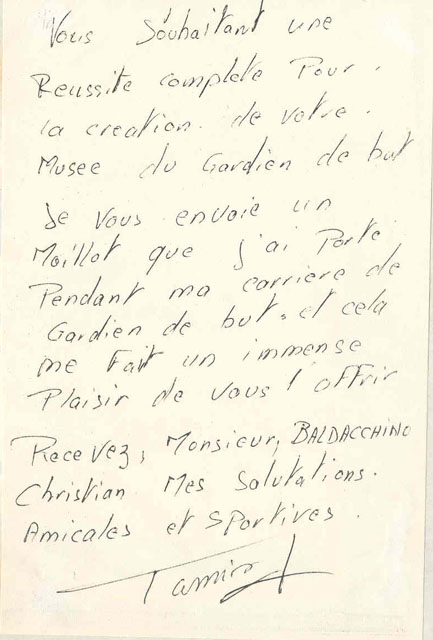 Vous Souhaitant une
Reussite complete Pour.
la creation. de votre.
Musee du Gardien de but
Je vous envoie un
Maillot que j'ai Porte
Pendant ma carriere de
Gardien de but. et cela
me Fait un immense
Plaisir de vous l'offrir
Recevez, Monsieur, BALDACCHINO
Christian Mes Salutations.
Amicales et SPortives.